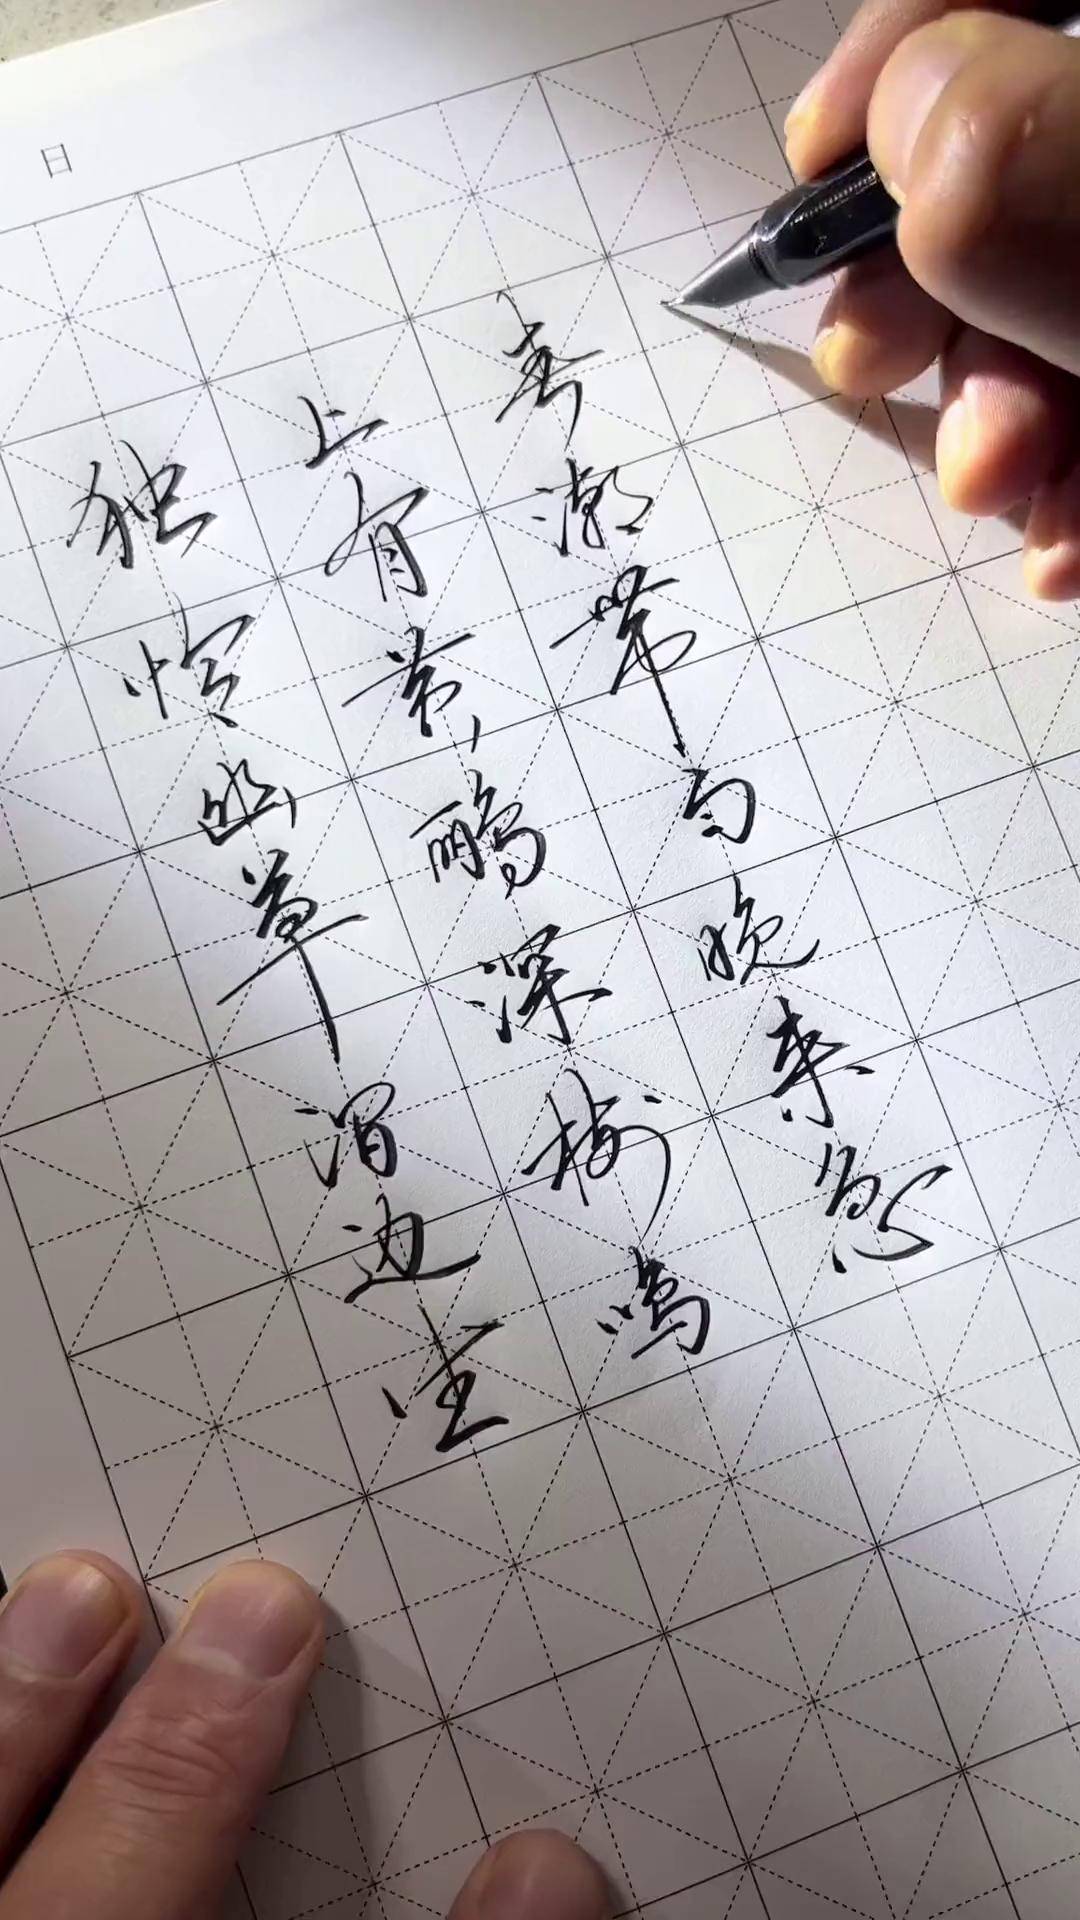 日
独怜幽草涧边生
上有黄鹂深树鸣
春潮带雨晚来急